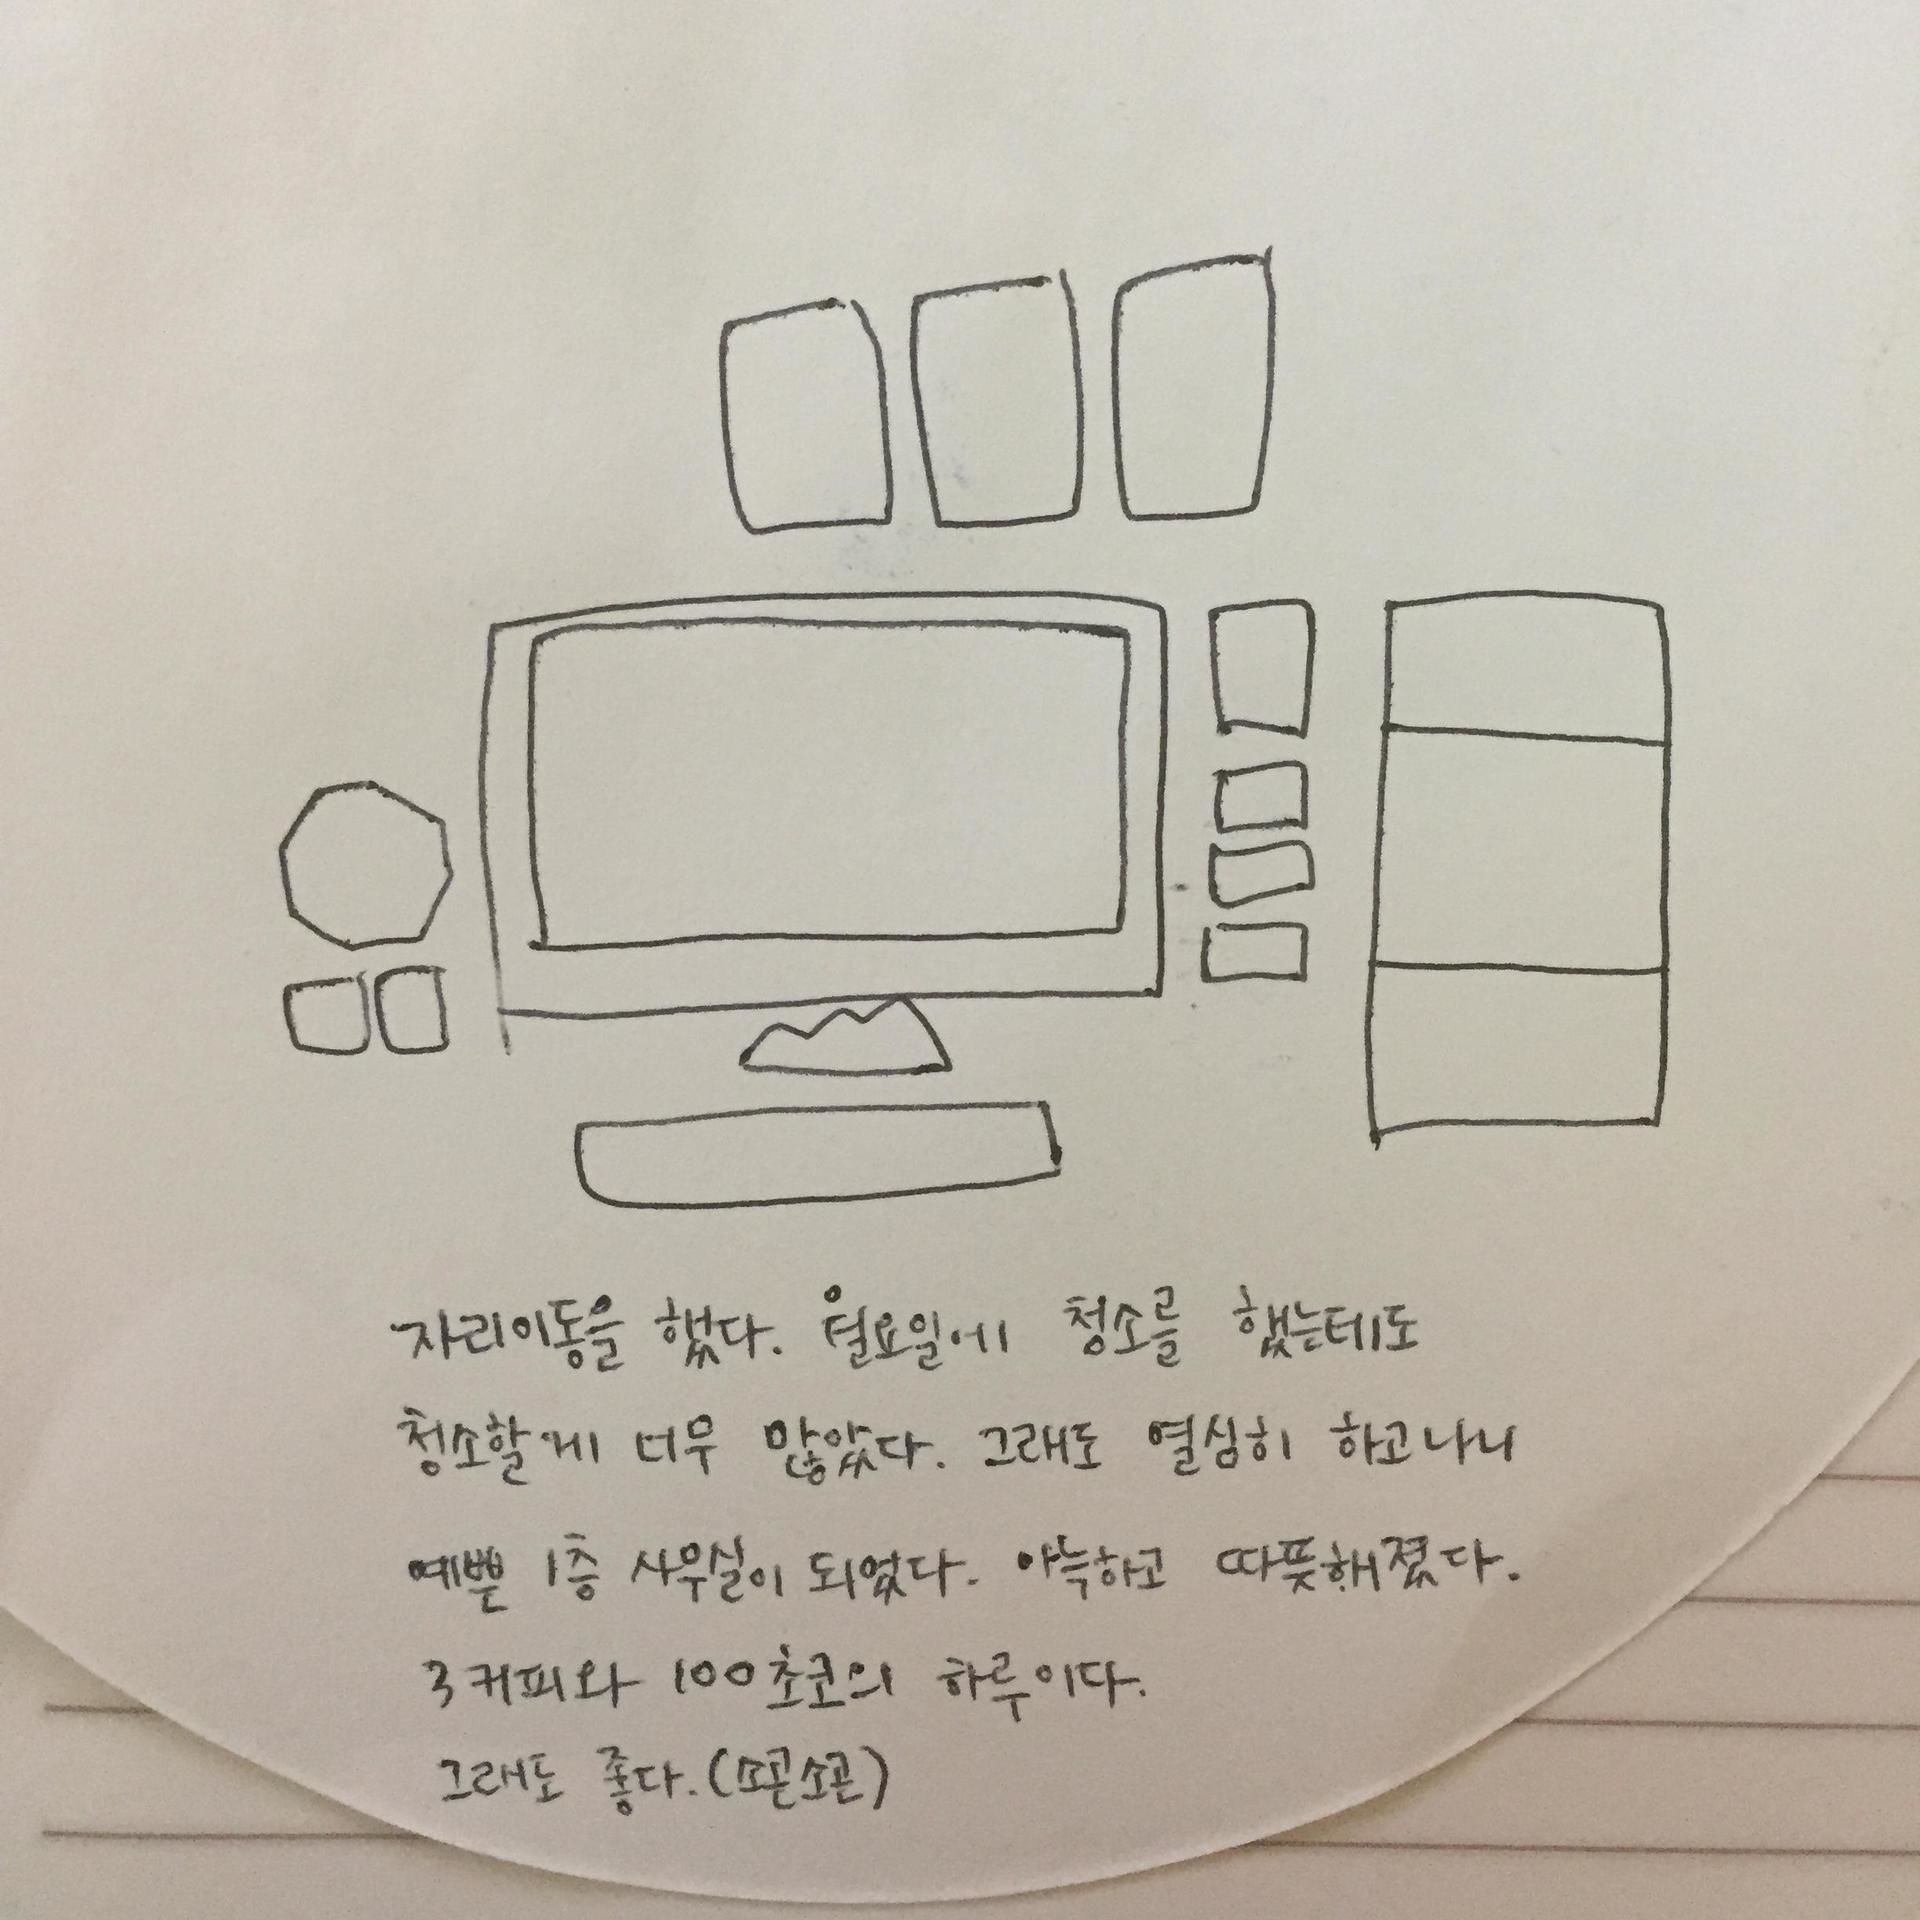 자리이동을 했다. 월요일에 청소를 했는데도
청소할게 너무 많았다. 그래도 열심히 하고나니
예쁜 1층 사무실이 되었다. 아늑하고 따뜻해졌다.
3커피와 100초코의 하루이다.
그래도 좋다.(소곤소곤)